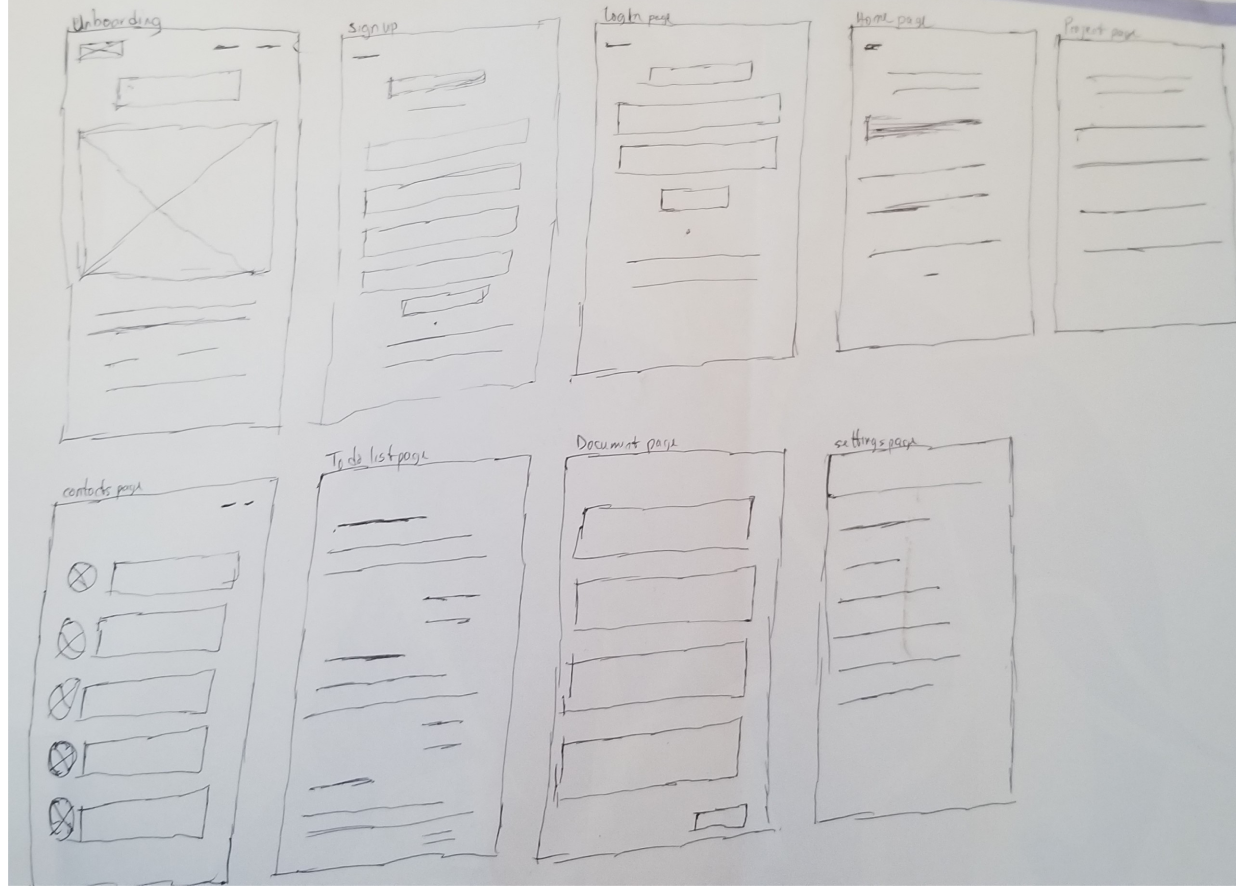 Unboarding
sign up
Login page
Home page
Project page
contacts page
To do list page
Document page
settings page